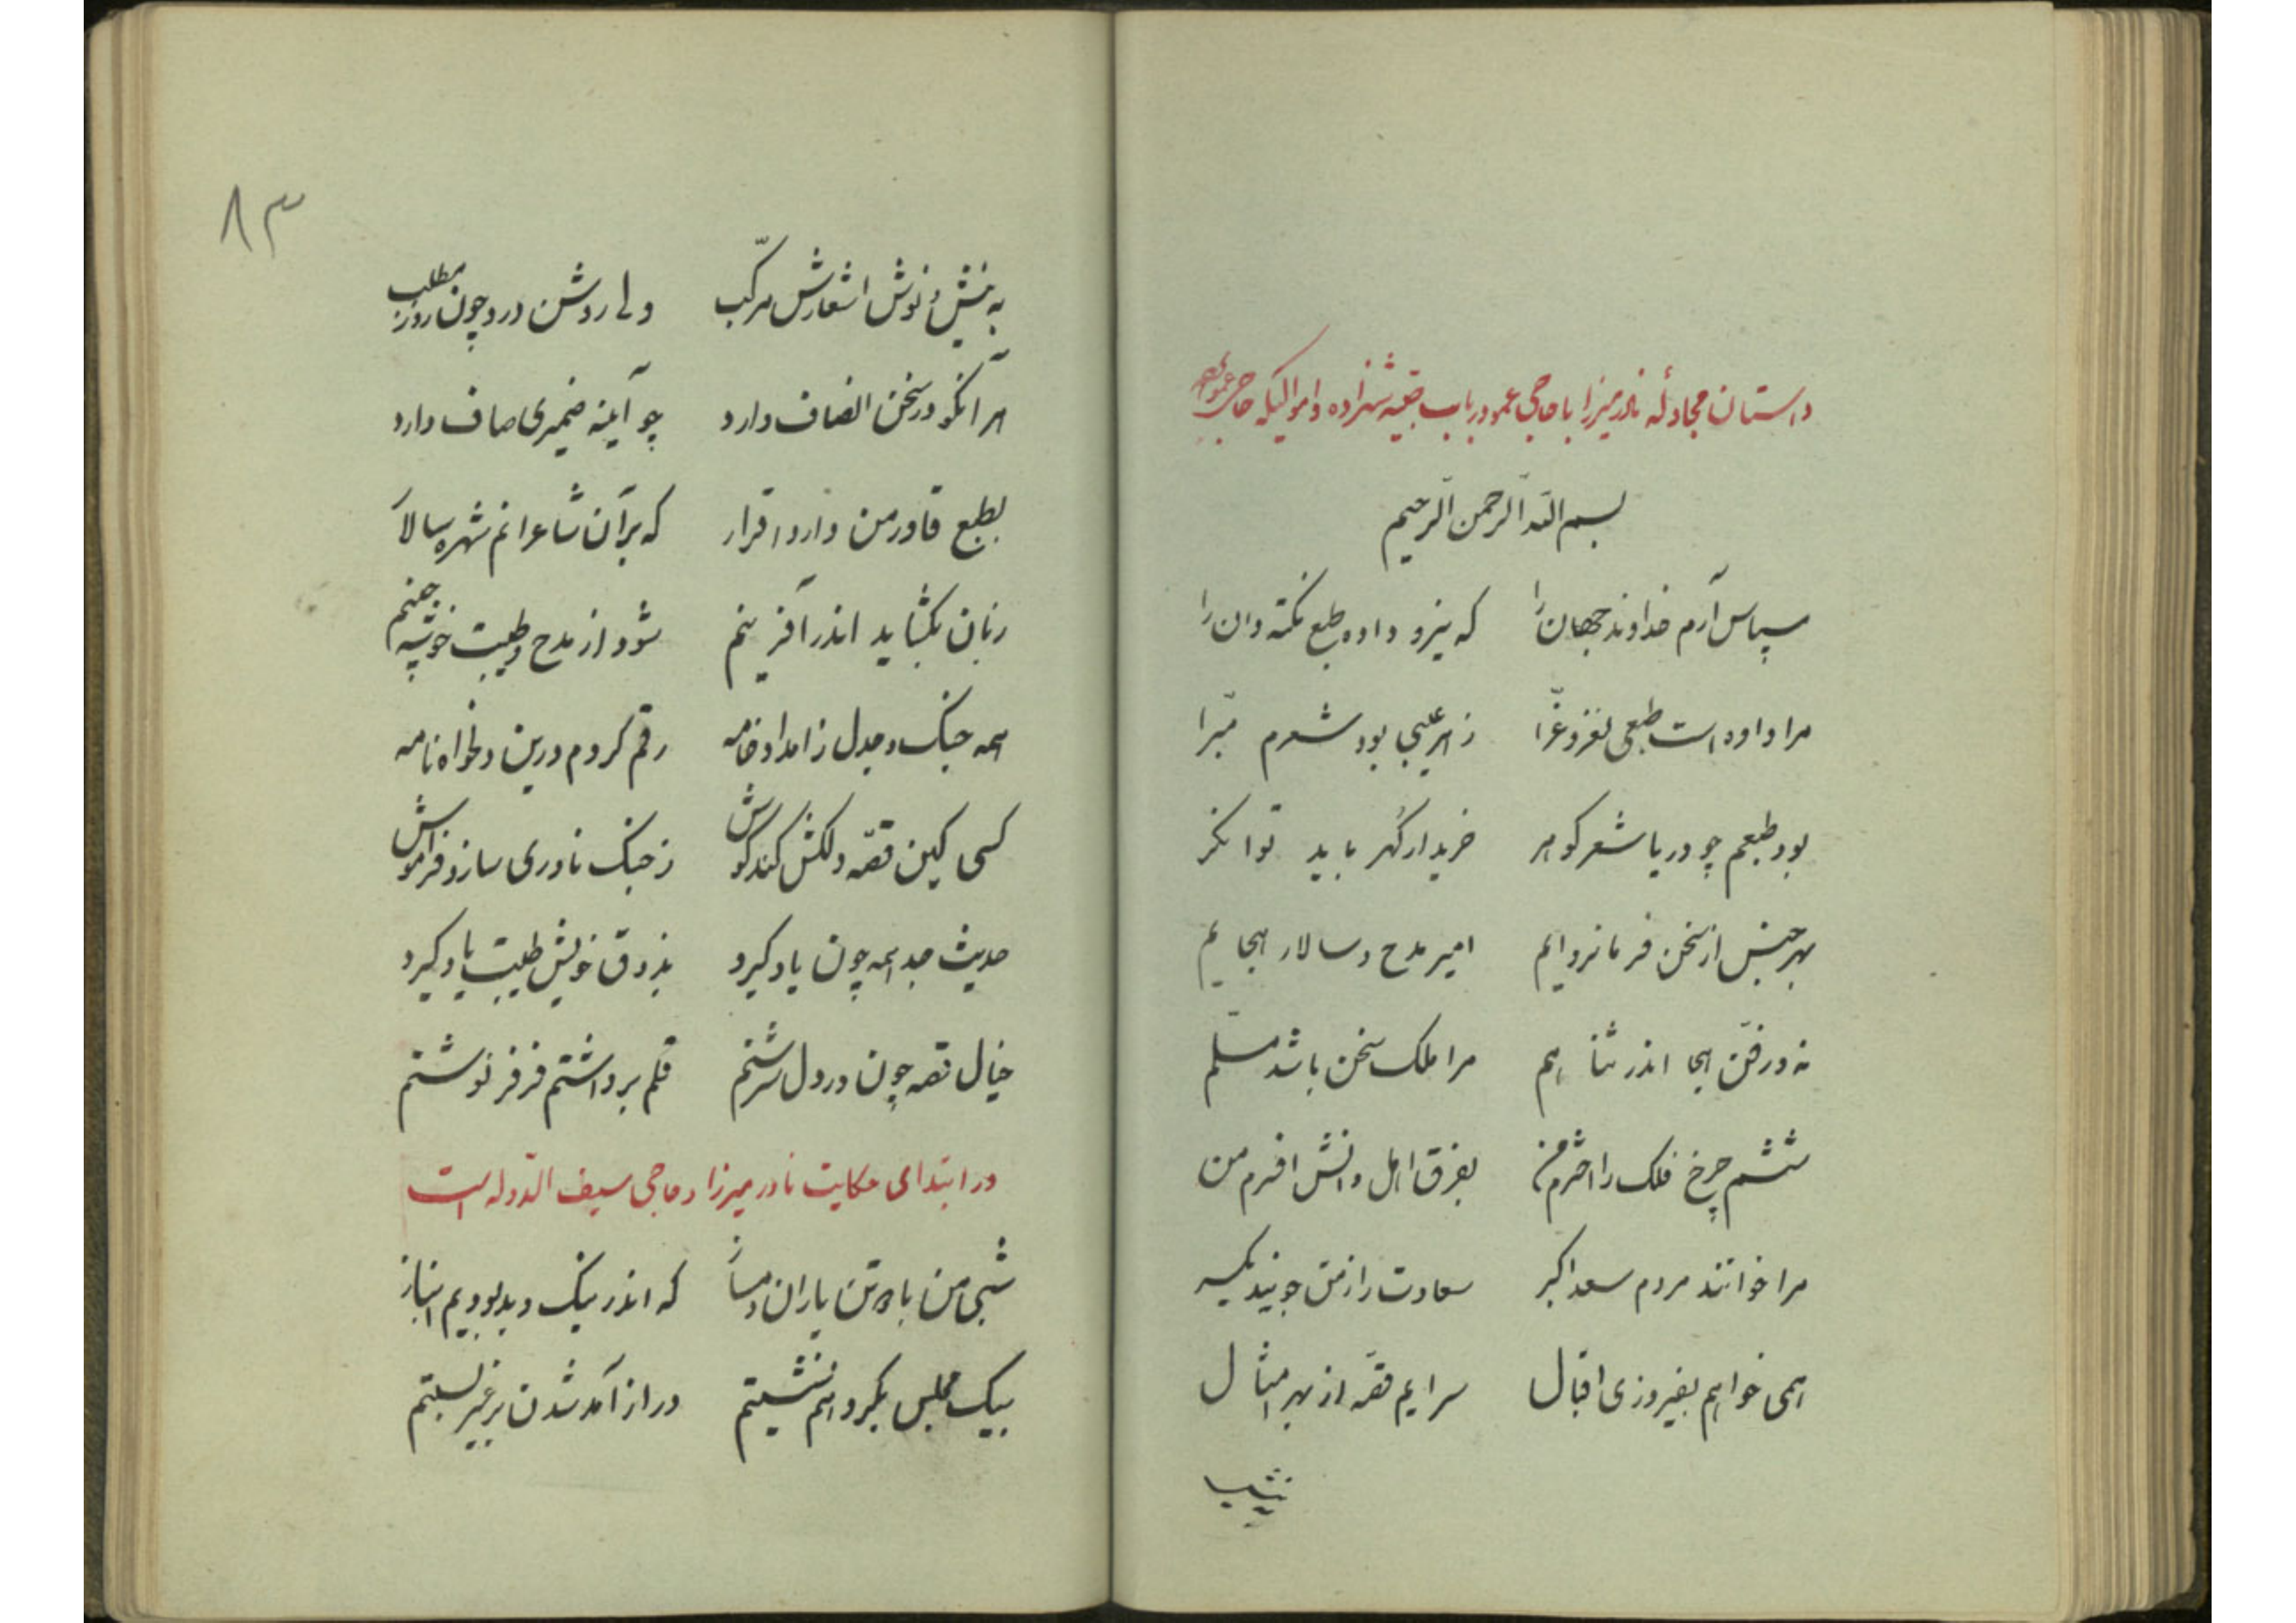 داستان مجادله نادر میرزا با حاجی عمو در باب صبیه شهزاده و اموالیکه حاجی عمو
بسم الله الرحمن الرحیم
سپاس آرم خداوند جهان را که نیرو داده طبع نکته دان را
مرا داده است طبعی نغز و غرّا ز هر عیبی بود شعرم مبّرا
بود طبعم چو دریا شعر گوهر خریدار گهر باید توانگر
بهر جنس از سخن فرمانروایم امیر مدح و سالار هجایم
نه در فنّ هجا اندر ثنا هم مرا ملک سخن باشد مسلّم
ششم چرخ فلک را اخترم من بفرق اهل دانش افسرم من
مرا خوانند مردم سعد اکبر سعادت را ز من جویند یکسر
همی خواهم بفیروزی اقبال سرایم قصّه از بهر امثال
۸۳
به نیش و نوش اشعارش مرکّب ولی روشن درو چون روز مطلب
هر آنکو در سخن انصاف دارد چو آینه ضمیری صاف دارد
بطبع قادر من دارد اقرار که بر آن شاعرانم شهره سالار
زبان بگشاید اندر آفرینم شود از مدح و طیبت خوشه چینم
همه جنگ و جدل ز امداد خامه رقم کردم درین دلخواه نامه
کسی کین قصّه دلکش کند گوش ز جنگ نادری سازد فراموش
حدیث جد همه چون یاد گیرد بذوق خویش طیبت یاد گیرد
خیال قصه چون در دل سرشتم قلم برداشتم فرفر نوشتم
در ابتدای حکایت نادر میرزا و حاجی سیف الدّوله است
شبی من با دو تن یاران دمساز که اندر نیک و بد بودیم انباز
بیک مجلس بگرد هم نشستیم در از آمد شدن بر غیر بستیم